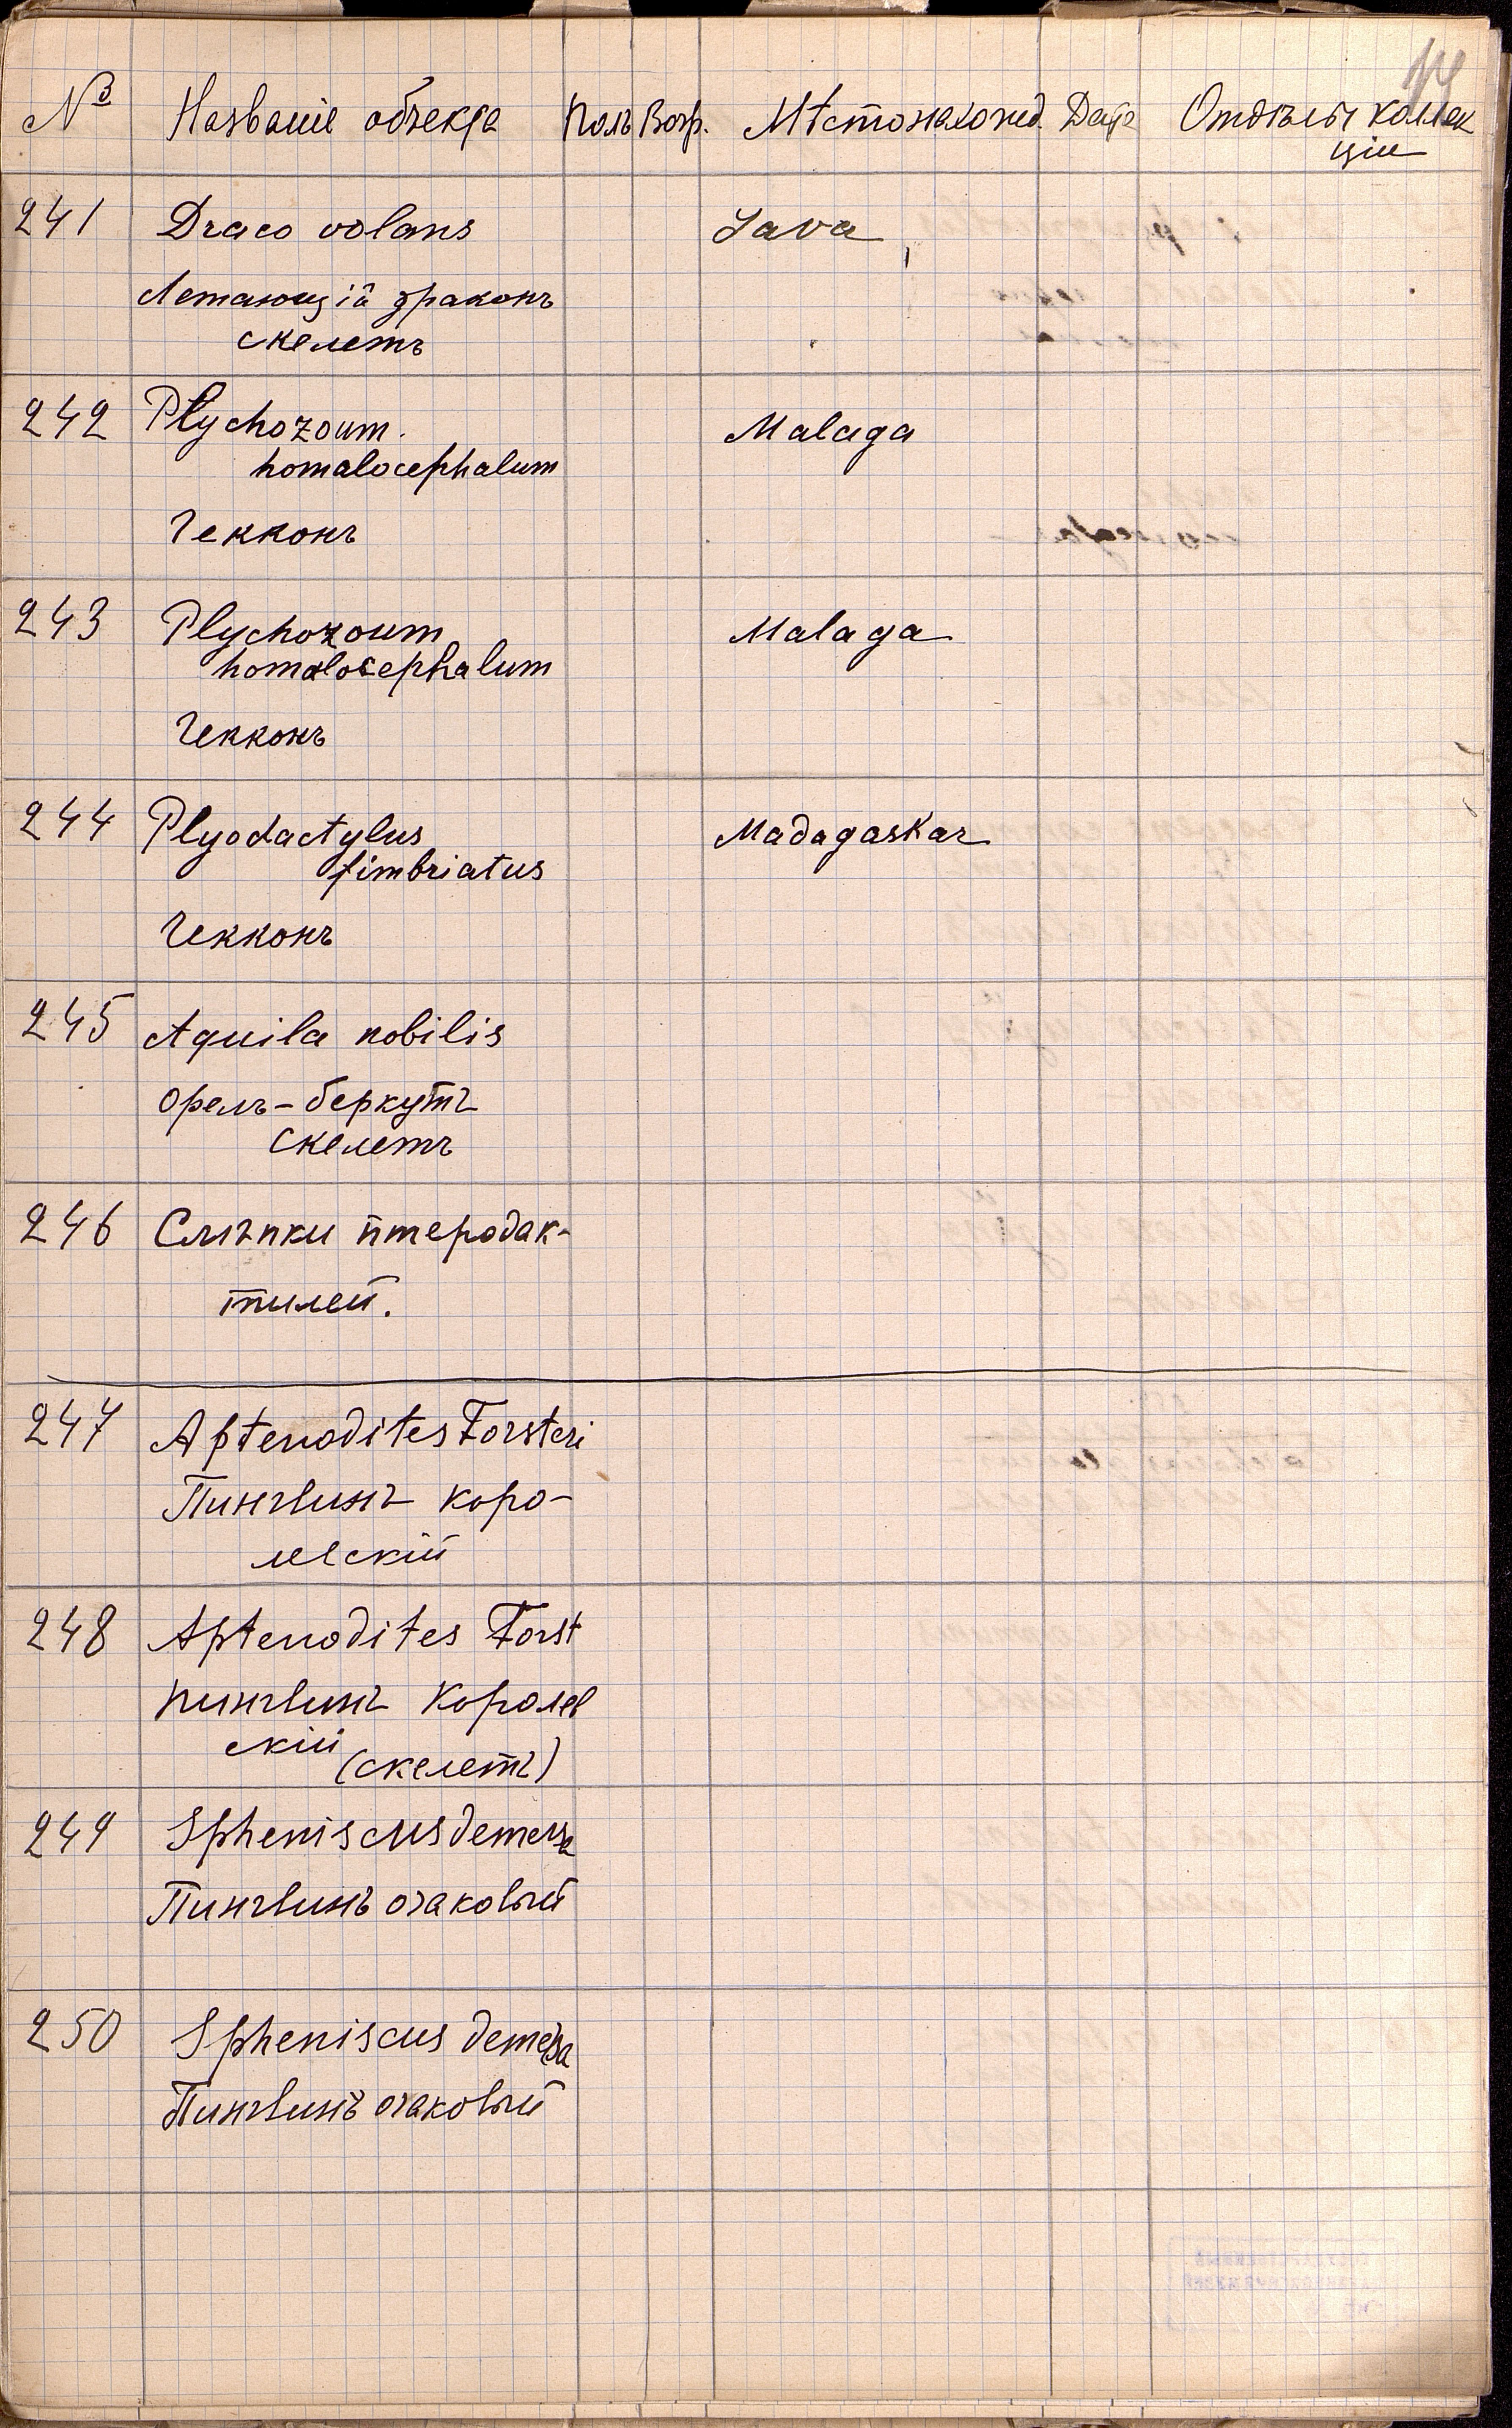 № Названіе объекта Полъ Возр. Мѣстонахожд. Дата Отдѣлы коллек
ціи
241 Draco volans Java
Летающій драконъ
скелетъ
242 Ptychozoum Malaga
homalocephalum
Гекконъ
243 Ptychozoum Malaga
homalocephalum
Гекконъ
244 Ptyodactylus Madagaskar
fimbriatus
Гекконъ
245 Aquila nobilis
Орелъ-беркутъ
скелетъ
246 Слѣпки птеродак-
тилей.
247 Aptenodites Forsteri
Пингвинъ коро-
левскій
248 Aptenodites Forst
пингвинъ королев
скій
(скелетъ)
249 Spheniscus demersa
Пингвинъ очковый
250 Spheniscus demersa
Пингвинъ очковый